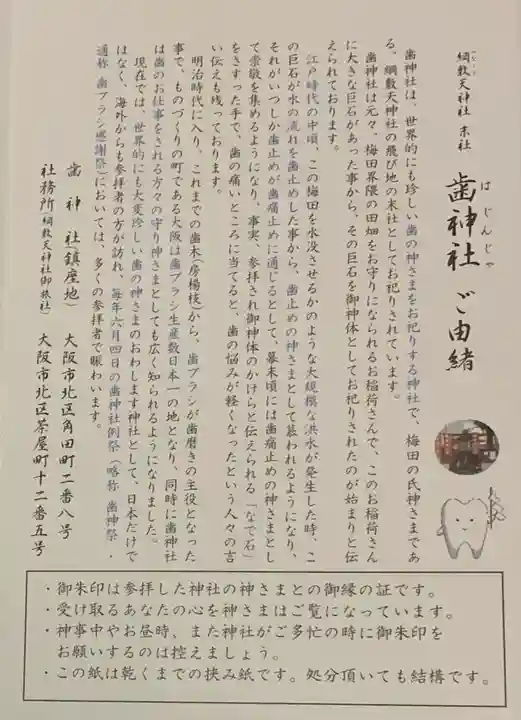 綱敷天神社 末社
歯神社 ご由緒
はじんじゃ
歯神社は、世界的にも珍しい歯の神さまをお祀りする神社で、梅田の氏神さまであ
る、綱敷天神社の飛び地の末社としてお祀りされています。
歯神社は元々、梅田界隈の田畑をお守りになられるお稲荷さんで、このお稲荷さん
に大きな巨石があった事から、その巨石を御神体としてお祀りされたのが始まりと伝
えられております。
江戸時代の中頃、この梅田を水没させるかのような大規模な洪水が発生した時、こ
の巨石が水の流れを歯止めした事から、歯止めの神さまとして慕われるようになり、
それがいつしか歯止めが歯痛止めに通じるとして、幕末頃には歯痛止めの神さまとし
て崇敬を集めるようになり、事実、参拝され御神体のかけらと伝えられる「なで石」
をさすった手で、歯の痛いところに当てると、歯の悩みが軽くなったという人々の言
い伝えも残っております。
明治時代に入り、これまでの歯木（房楊枝）から、歯ブラシが歯磨きの主役となった
事で、ものづくりの町である大阪は歯ブラシ生産数日本一の地となり、同時に歯神社
は歯のお仕事をされる方々の守り神さまとしても広く知られるようになりました。
現在では、世界的にも大変珍しい歯の神さまのおわします神社として、日本だけで
はなく、海外からも参拝者の方が訪れ、毎年六月四日の歯神社例祭（略称 歯神祭・
通称 歯ブラシ感謝祭）においては、多くの参拝者で賑わいます。
歯神社（鎮座地） 大阪市北区角田町二番八号
社務所（綱敷天神社御旅社） 大阪市北区茶屋町十二番五号
・御朱印は参拝した神社の神さまとの御縁の証です。
・受け取るあなたの心を神さまはご覧になっています。
・神事中やお昼時、また神社がご多忙の時に御朱印を
お願いするのは控えましょう。
・この紙は乾くまでの挟み紙です。処分頂いても結構です。